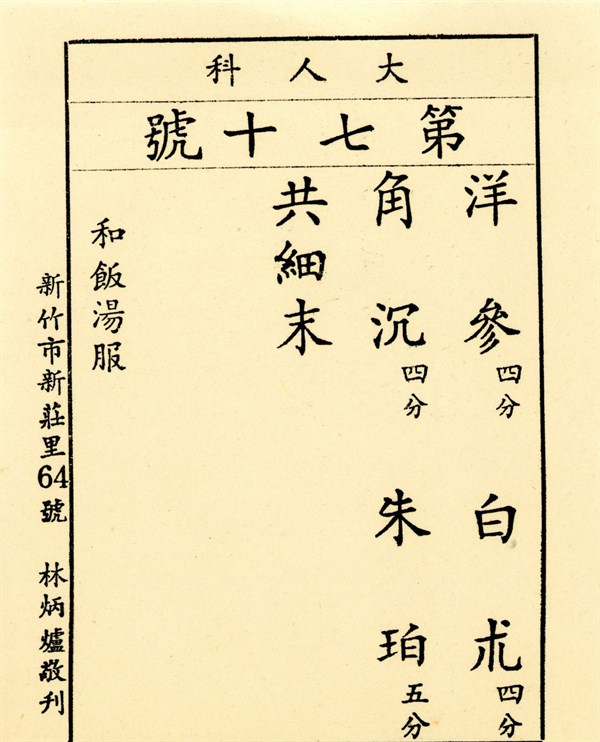 大人科
第七十號
洋參四分 白朮四分
角沉四分 朱珀五分
共細末
和飯湯服
新竹市新莊里64號 林炳爐敬刊